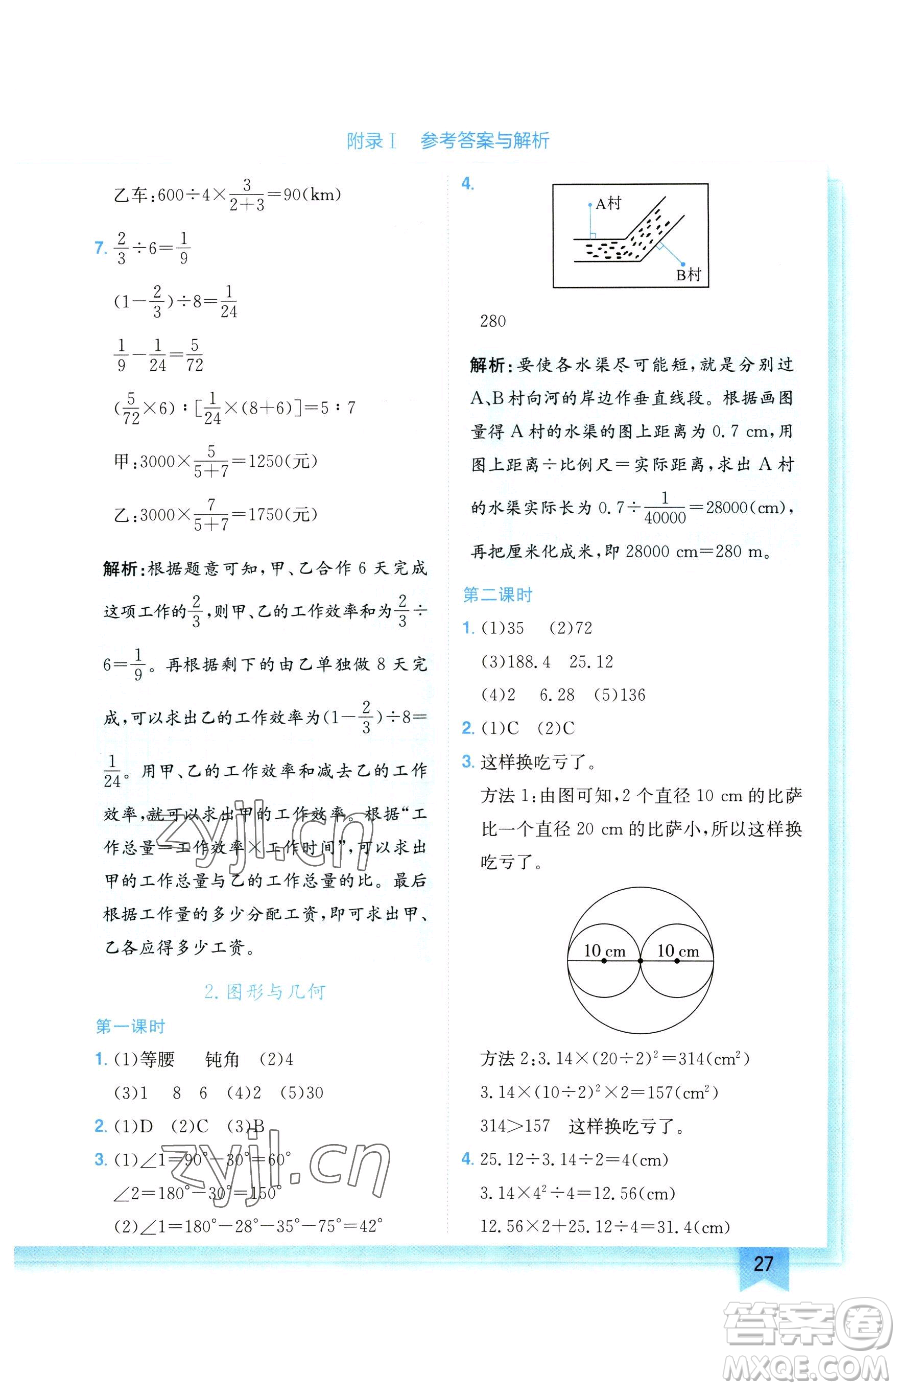 附录Ⅰ 参考答案与解析
乙车:600÷4×3/(2+3)=90(km)
7. 2/3÷6=1/9
(1-2/3)÷8=1/24
1/9-1/24=5/72
(5/72×6)∶[1/24×(8+6)]=5∶7
甲:3000×5/(5+7)=1250(元)
乙:3000×7/(5+7)=1750(元)
解析:根据题意可知,甲、乙合作 6 天完成
这项工作的2/3,则甲、乙的工作效率和为2/3÷
6=1/9。再根据剩下的由乙单独做 8 天完
成,可以求出乙的工作效率为(1-2/3)÷8=
1/24。用甲、乙的工作效率和减去乙的工作
效率,就可以求出甲的工作效率。根据“工
作总量=工作效率×工作时间”,可以求出
甲的工作总量与乙的工作总量的比。最后
根据工作量的多少分配工资,即可求出甲、
乙各应得多少工资。
2.图形与几何
第一课时
1. (1)等腰 钝角 (2)4
(3)1 8 6 (4)6 (5)30
2. (1)D (2)C (3)B
3. (1)∠1=90°-30°=60°
∠2=180°-30°=150°
(2)∠1=180°-28°-35°-75°=42°
4.
A村
B村
280
解析:要使各水渠尽可能短,就是分别过
A、B 村向河的岸边作垂直线段。根据画图
量得 A 村的水渠的图上距离为 0.7 cm,用
图上距离÷比例尺=实际距离,求出 A 村
的水渠实际长为 0.7÷1/40000=28000(cm),
再把厘米化成米,即 28000 cm=280 m。
第二课时
1. (1)35 (2)72
(3)188.4 25.12
(4)2 6.28 (5)136
2. (1)C (2)C
3. 这样换吃亏了。
方法 1:由图可知,2 个直径 10 cm 的比萨
比一个直径 20 cm 的比萨小,所以这样换
吃亏了。
10 cm 10 cm
方法 2:3.14×(20÷2)²=314(cm²)
3.14×(10÷2)²×2=157(cm²)
314>157 这样换吃亏了。
4. 25.12÷3.14÷2=4(cm)
3.14×4²÷4=12.56(cm)
12.56×2+12.56÷4×2=31.4(cm)
27
zyjl.cn
zyjl.cn
答案圈
MXQE.COM